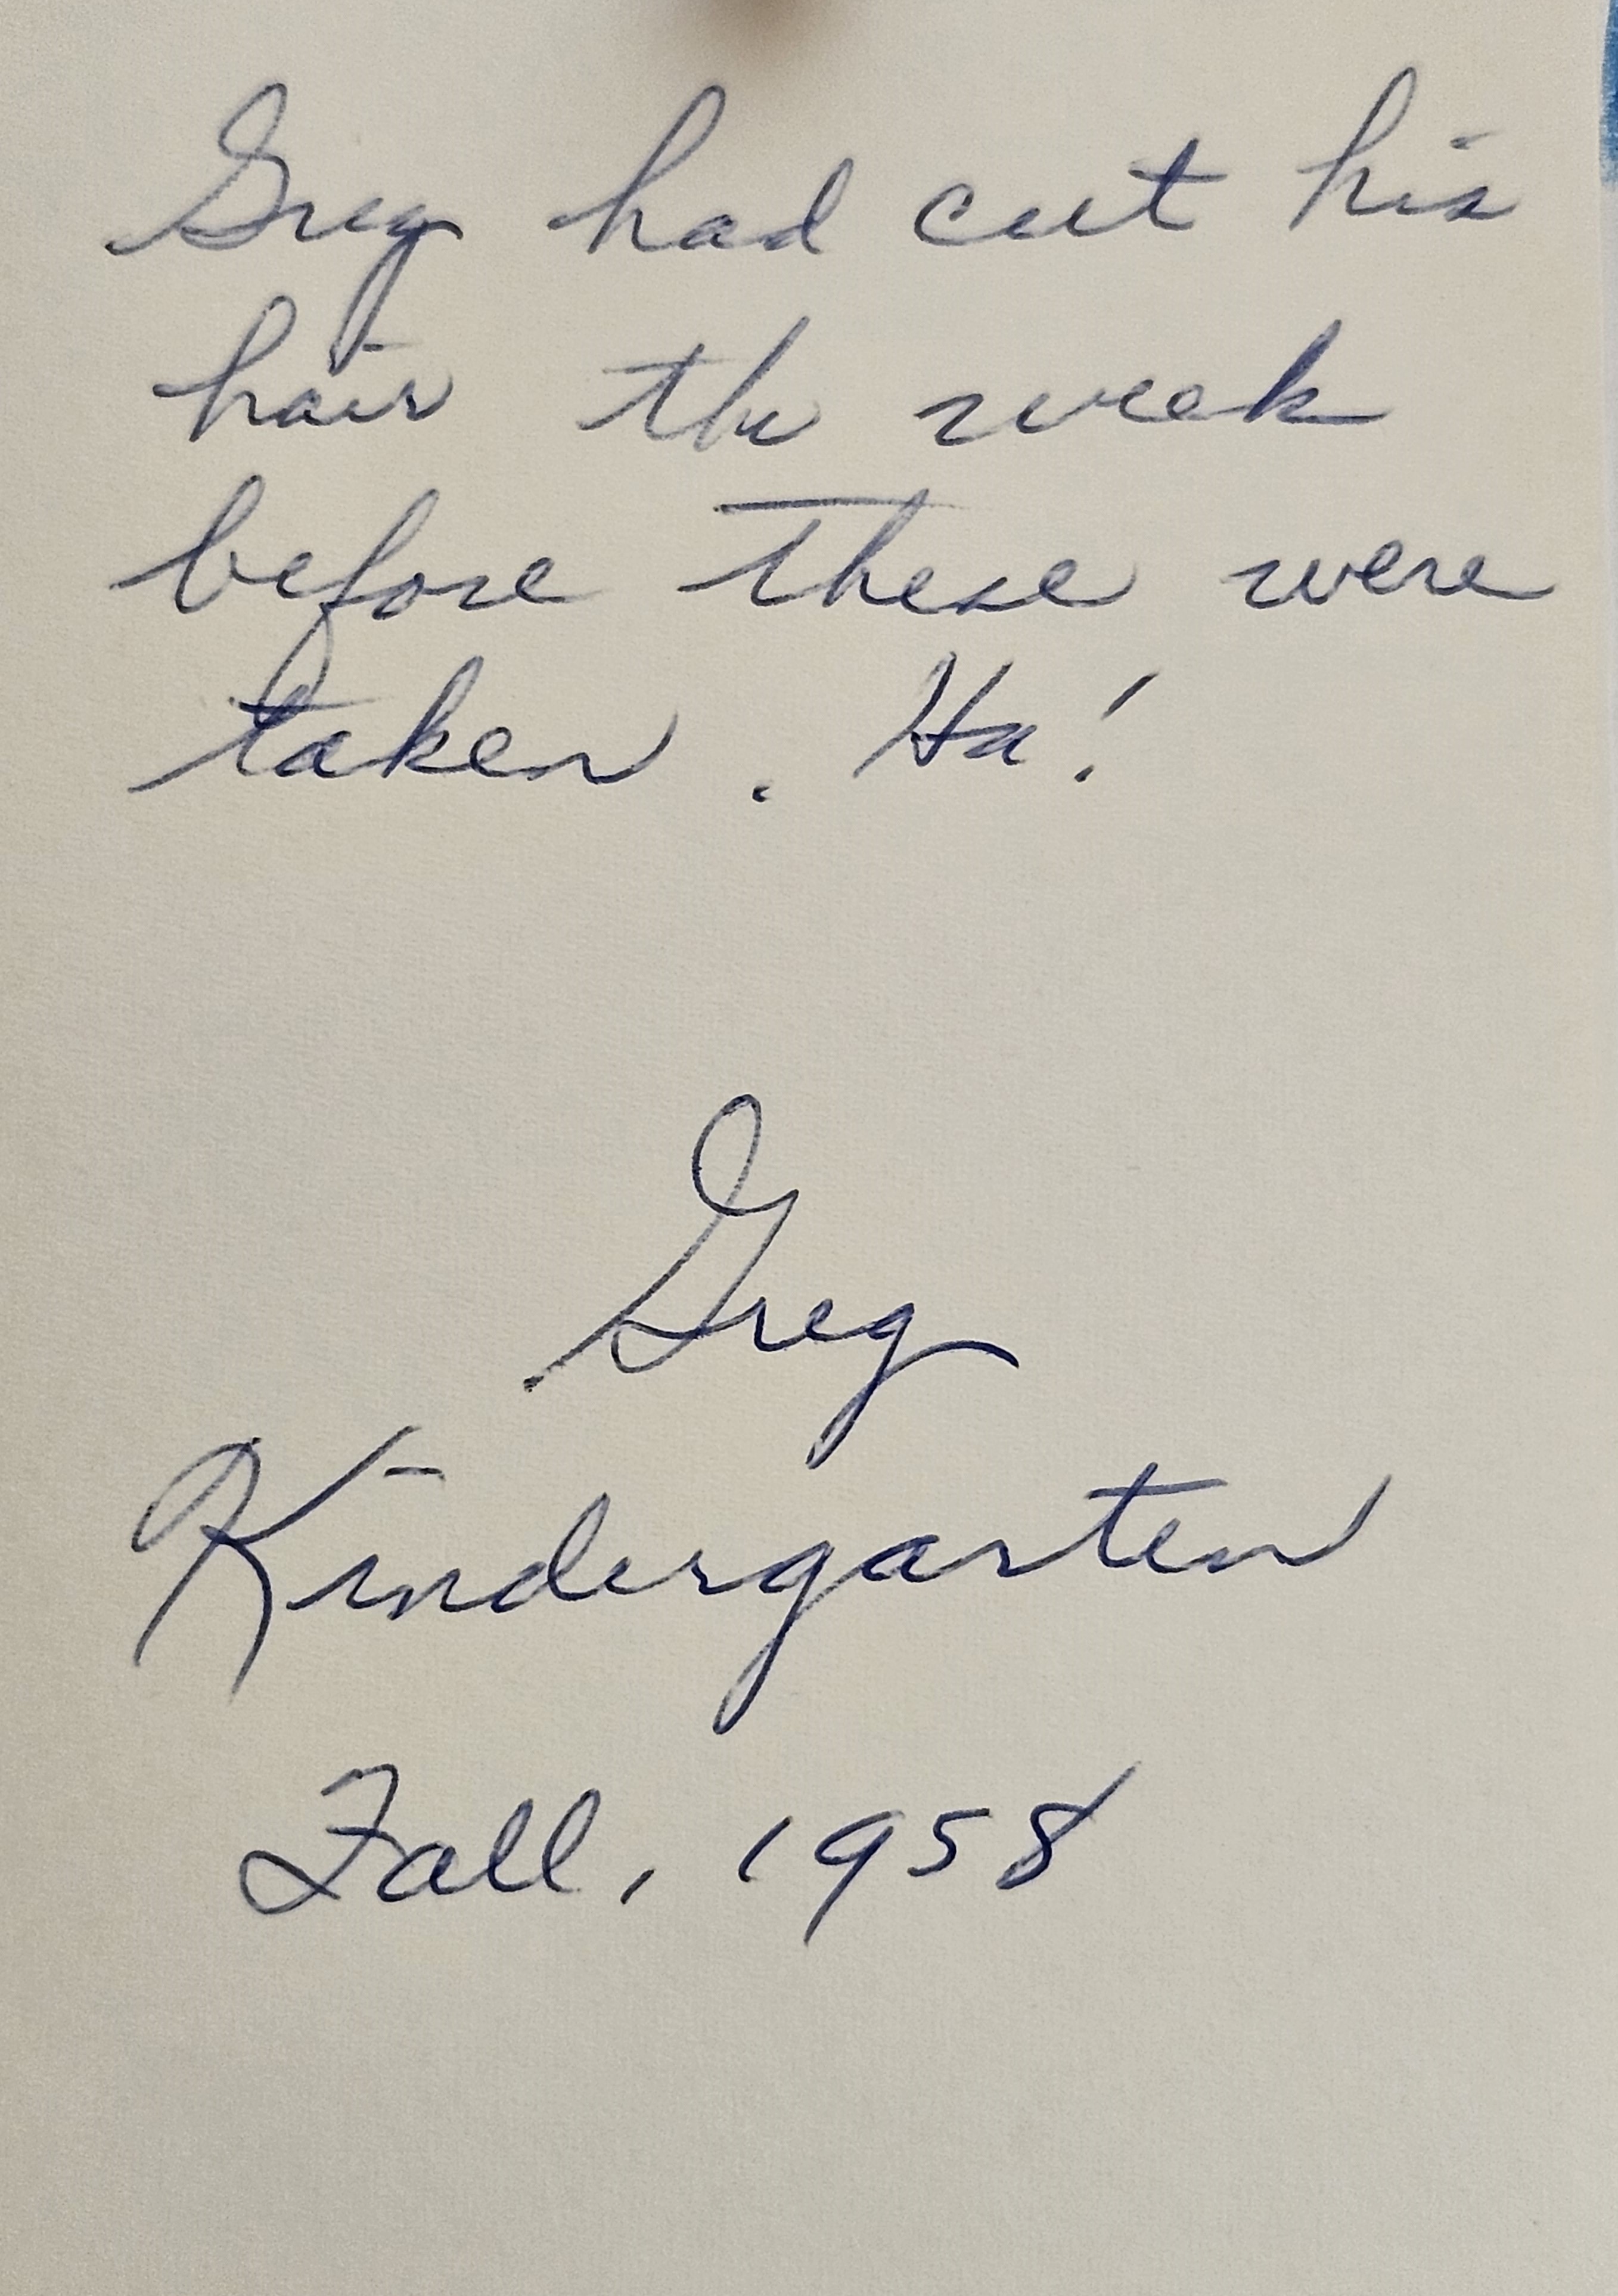 Greg had cut his
hair the week
before these were
taken. Ha!
Greg
Kindergarten
Fall, 1958